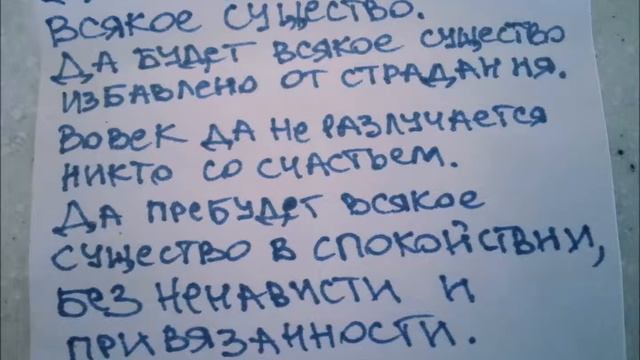 ВСЯКОЕ СУЩЕСТВО.
ДА БУДЕТ ВСЯКОЕ СУЩЕСТВО
ИЗБАВЛЕНО ОТ СТРАДАНИЯ.
ВОВЕК ДА НЕ РАЗЛУЧАЕТСЯ
НИКТО СО СЧАСТЬЕМ.
ДА ПРЕБУДЕТ ВСЯКОЕ
СУЩЕСТВО В СПОКОЙСТВИИ,
БЕЗ НЕНАВИСТИ И
ПРИВЯЗАННОСТИ.